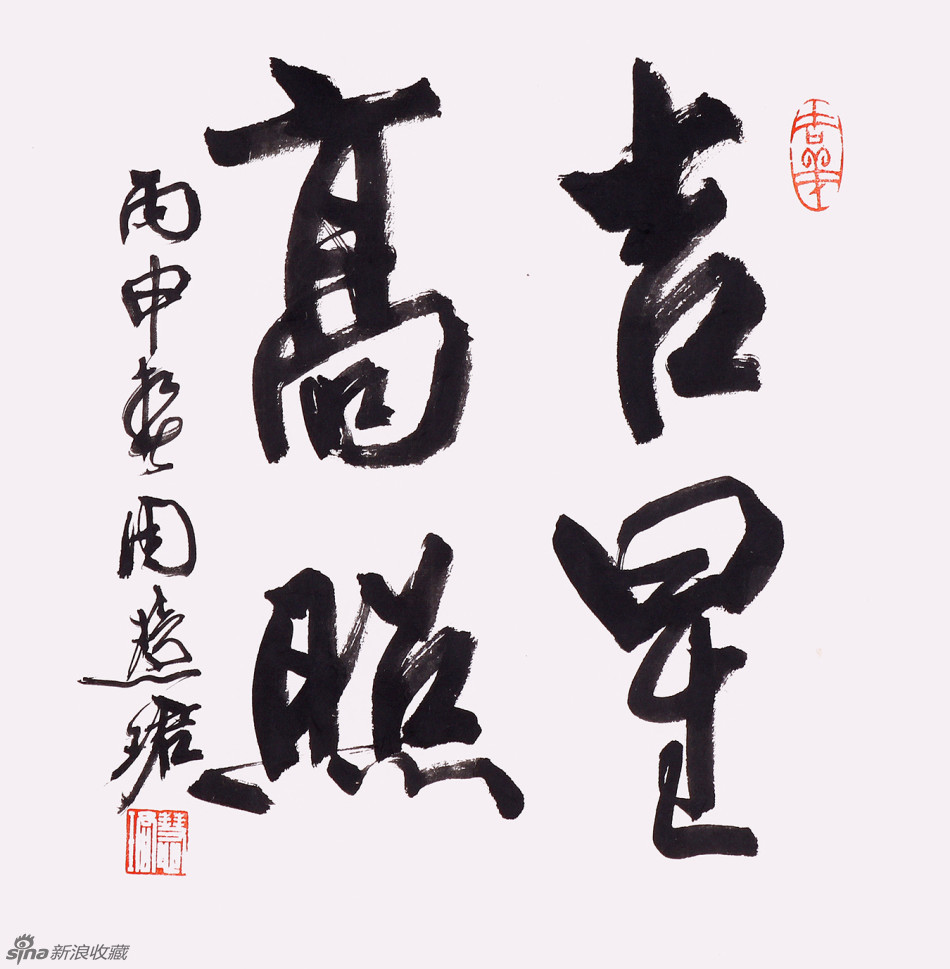 吉羊
吉星
高照
丙申春周慧珺
慧珺
sina新浪收藏